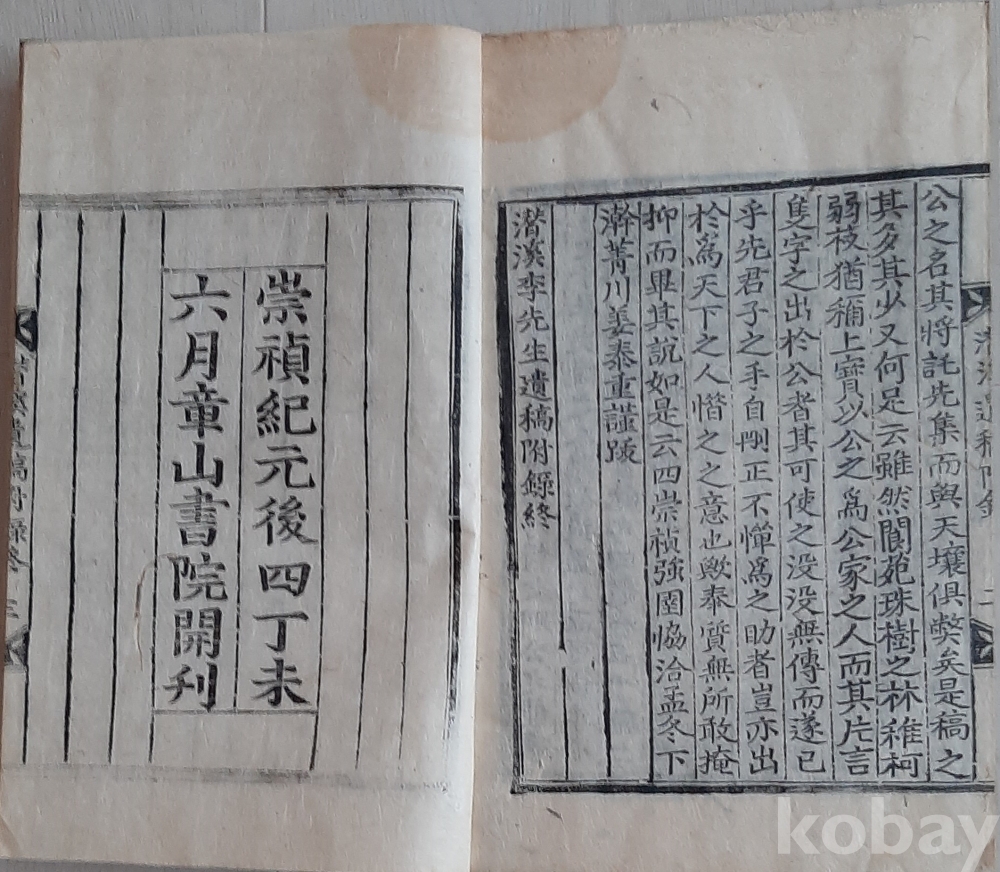 公之名其將託先集而與天壤俱弊矣是稿之
其多其少又何足云雖然閬苑珠樹之林稚柯
弱枝猶稱上寶以公之爲公家之人而其片言
隻字之出於公者其可使之没没無傳而遂已
乎先君子之手自刪正不憚爲之助者豈亦出
於爲天下之人惜之之意也歟泰質無所敢掩
抑而畢其說如是云四崇禎強圉協洽孟冬下
澣菁川姜泰重謹跋
潛溪李先生遺稿附錄終
潛溪遺稿附錄 二
崇禎紀元後四丁未
六月章山書院開刊
潛溪遺稿附錄終 三
kobay